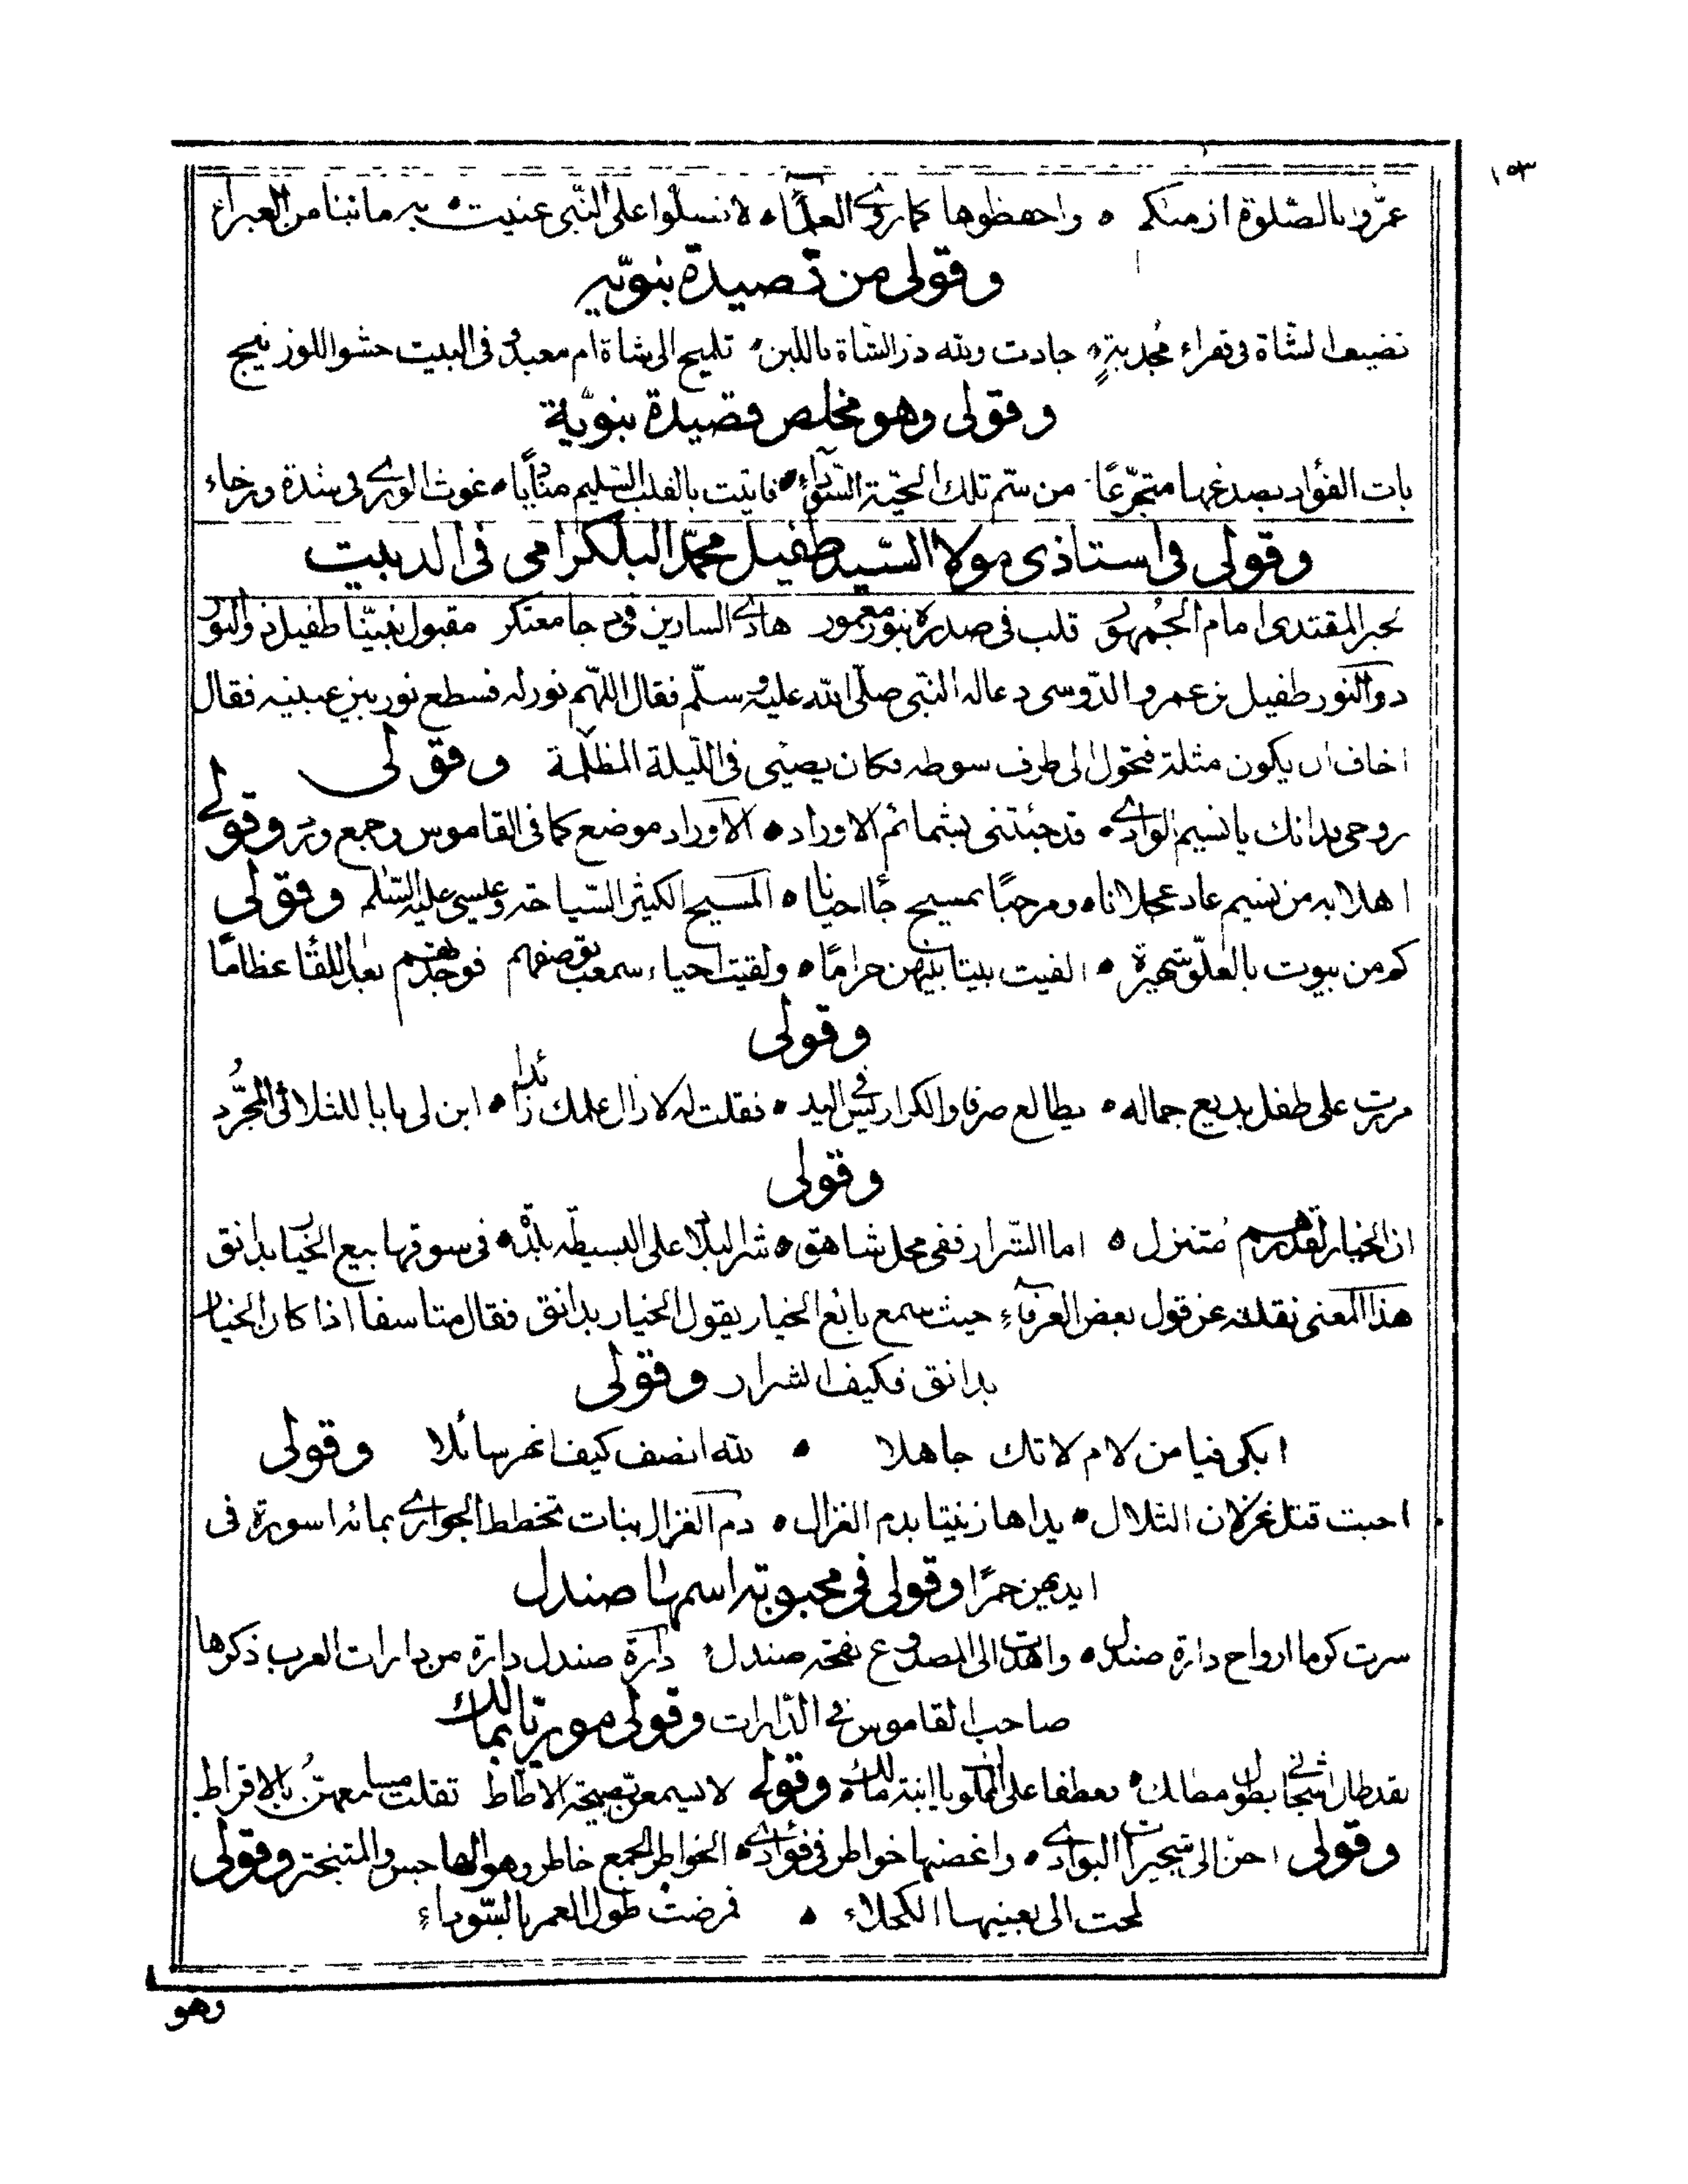 ١٥٣
عزوا بالصلوة ازمنكم ۞ واحفظوها كما روى العلماء ۞ لا تسلوا على النبى عنيت به ما نبنا من العبراء
وقولى من قصيدة نبويّة
نضيع الشاة فى قفراء مجدبة ۞ جادت ولله در الشاة باللبن ۞ تلميح الى شاة ام معبد وفى البيت حشو اللوزينج
وقولى وهو مخلص قصيدة نبويّة
بات الفؤاد بصدغها متجرّعًا من سمّ تلك الحيّة السوداء ۞ فاتيت بالقلب السليم منابا ۞ غوث الورى فى شدة ورخاء
وقولى فى استاذى مولانا السّيد طفيل محمّد البلكرامى فى الدبيت
نحبر المقتدى امام الجمهور قلب فى صدره بنور معمور هادى السارين فى دجا معتكر مقبول نبيّنا طفيل ذو النور
ذو النور طفيل بن عمرو الدّوسى دعا له النبى صلّى الله عليه وسلّم فقال اللهم نور له فسطع نور بين عينيه فقال
اخاف ان يكون مثلة فتحول الى طرف سوطه فكان يضيئ فى الليلة المظلمة وقولى
روحى فدائك يا نسيم الوادى ۞ قد جئتنى بشمائم الاوراد ۞ الاوراد موضع كما فى القاموس وجمع ورد وقولى
اهلا به من نسيم عاد عجلانا ۞ ومرحبًا بمسيح جاء احيانا ۞ المسيح الكثير السّياحة وعيسى عليه السّلم وقولى
كم من بيوت بالعلوّ شهيرة ۞ الفيت بيتا بينهن حراما ۞ ولقيت احياء سمعت بوصفهم فوجدتهم بعد اللقا عظاما
وقولى
مررت على طفل بديع جماله ۞ يطالع صرفا والكراريس فى اليد ۞ فقلت له لا زال علمك زائدا ۞ ابن لى بابا للثلاثى المجرّد
وقولى
ان الخيار لقدرهم متنزل ۞ اما الشرار ففى محل شاهق ۞ شر البلاد على البسيطة بلدة ۞ فى سوقها بيع الخيار بدانق
هذا المعنى نقلته عن قول بعض العرفاء حيث سمع بائع الخيار يقول الخيار بدانق فقال متاسفا اذا كان الخيار
بدانق فكيف الشرار وقولى
ابكى فيا من لام لا تك جاهلا ۞ لله انصف كيف انهر سائلا وقولى
احبت قتل غزلان التلال ۞ يداها زينتا بدم الغزال ۞ دم الغزال نبات تخطط الجوارى بمائه اسورة فى
ايديهن حمرًا وقولى فى محبوبة اسمها صندل
سرت كرما ارواح دارة صندل ۞ واهدت الى المصدوع نفحة صندل دارة صندل دارة من دارات العرب ذكرها
صاحب القاموس فى الدّارات وقولى موريا بمالك
لقد طال اشجانى بطول مطالك ۞ تعطفا على المملوك يا ابنة مالك ۞ وقولى لا يسمعن صيحة الاطاط ثقلت مسامعهن بالاقراط
وقولى احن الى شجيرات البوادى ۞ واغضنها خواطر فى فؤادى ۞ الخواطر الجمع خاطر وهو الهاجس والمتبختر وقولى
لمحت الى بعينها الكحلاء ۞ فمرضت طول العمر بالسّوداء
وهو